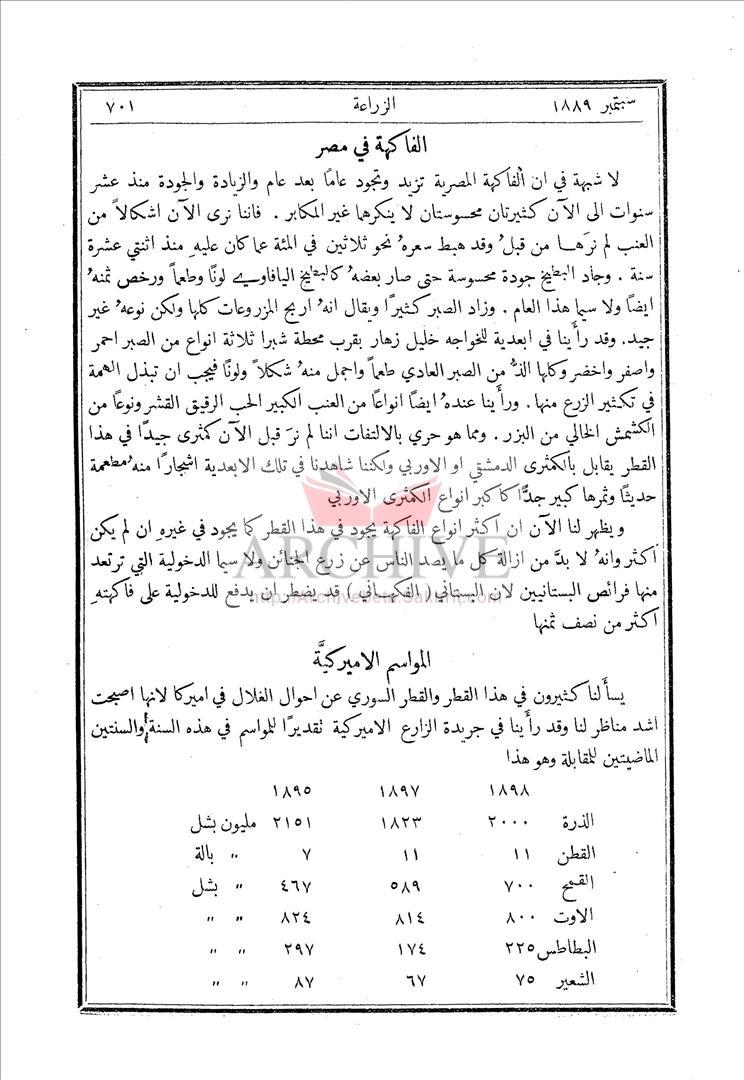 سبتمبر ١٨٨٩ الزراعة ٧٠١
الفاكهة في مصر
لا شبهة في ان الفاكهة المصرية تزيد وتجود عامًا بعد عام والزيادة والجودة منذ عشر
سنوات الى الآن كثيرتان محسوستان لا ينكرها غير المكابر . فاننا نرى الآن اشكالاً من
العنب لم نرَهـا من قبلُ وقد هبط سعرهُ نحو ثلاثين في المئة عما كان عليهِ منذ اثنتي عشرة
سنة . وجاد البطيخ جودة محسوسة حتى صار بعضهُ كالبطيخ اليافاوي لونًا وطعمًا ورخص ثمنهُ
ايضًا ولا سيما هذا العام . وزاد الصبر كثيرًا ويقال انهُ اربح المزروعات كلها ولكن نوعهُ غير
جيد. وقد رأينا في ابعدية للخواجه خليل زهار بقرب محطة شبرا ثلاثة انواع من الصبر احمر
واصفر واخضر وكلها الذُّ من الصبر العادي طعمًا واجمل منهُ شكلاً ولونًا فيجب ان تبذل الهمة
في تكثير الزرع منها . ورأينا عندهُ ايضًا انواعًا من العنب الكبير الحب الرقيق القشر ونوعًا من
الكشمش الخالي من البزر . ومما هو حري بالالتفات اننا لم نرَ قبل الآن كمثرى جيدًا في هذا
القطر يقابل بالكمثرى الدمشقي او الاوربي ولكننا شاهدنا في تلك الابعدية اشجارًا منهُ مطعمة
حديثًا وثمرها كبير جدًّا كاكبر انواع الكمثرى الاوربي
ويظهر لنا الآن ان اكثر انواع الفاكهة يجود في هذا القطر كما يجود في غيرهِ ان لم يكن
اكثر وانهُ لا بدَّ من ازالة كل ما يصد الناس عن زرع الجنائن ولا سيما الدخولية التي ترتعد
منها فرائص البستانيين لان البستاني ( الفكهـاني ) قد يضطر ان يدفع للدخولية على فاكهتهِ
اكثر من نصف ثمنها
ARCHIVE
المواسم الاميركيَّة
يسألنا كثيرون في هذا القطر والقطر السوري عن احوال الغلال في اميركا لانها اصبحت
اشد مناظر لنا وقد رأينا في جريدة الزارع الاميركية تقديرًا للمواسم في هذه السنة والسنتين
الماضيتين للمقابلة وهو هذا
١٨٩٨ ١٨٩٧ ١٨٩٥
الذرة ٢٠٠٠ ١٨٢٣ ٢١٥١ مليون بشل
القطن ١١ ١١ ٧ " بالة
القمح ٧٠٠ ٥٨٩ ٤٦٧ " بشل
الاوت ٨٠٠ ٨١٤ ٨٢٤ " "
البطاطس ٢٢٥ ١٧٤ ٢٩٧ " "
الشعير ٧٥ ٦٧ ٨٧ " "